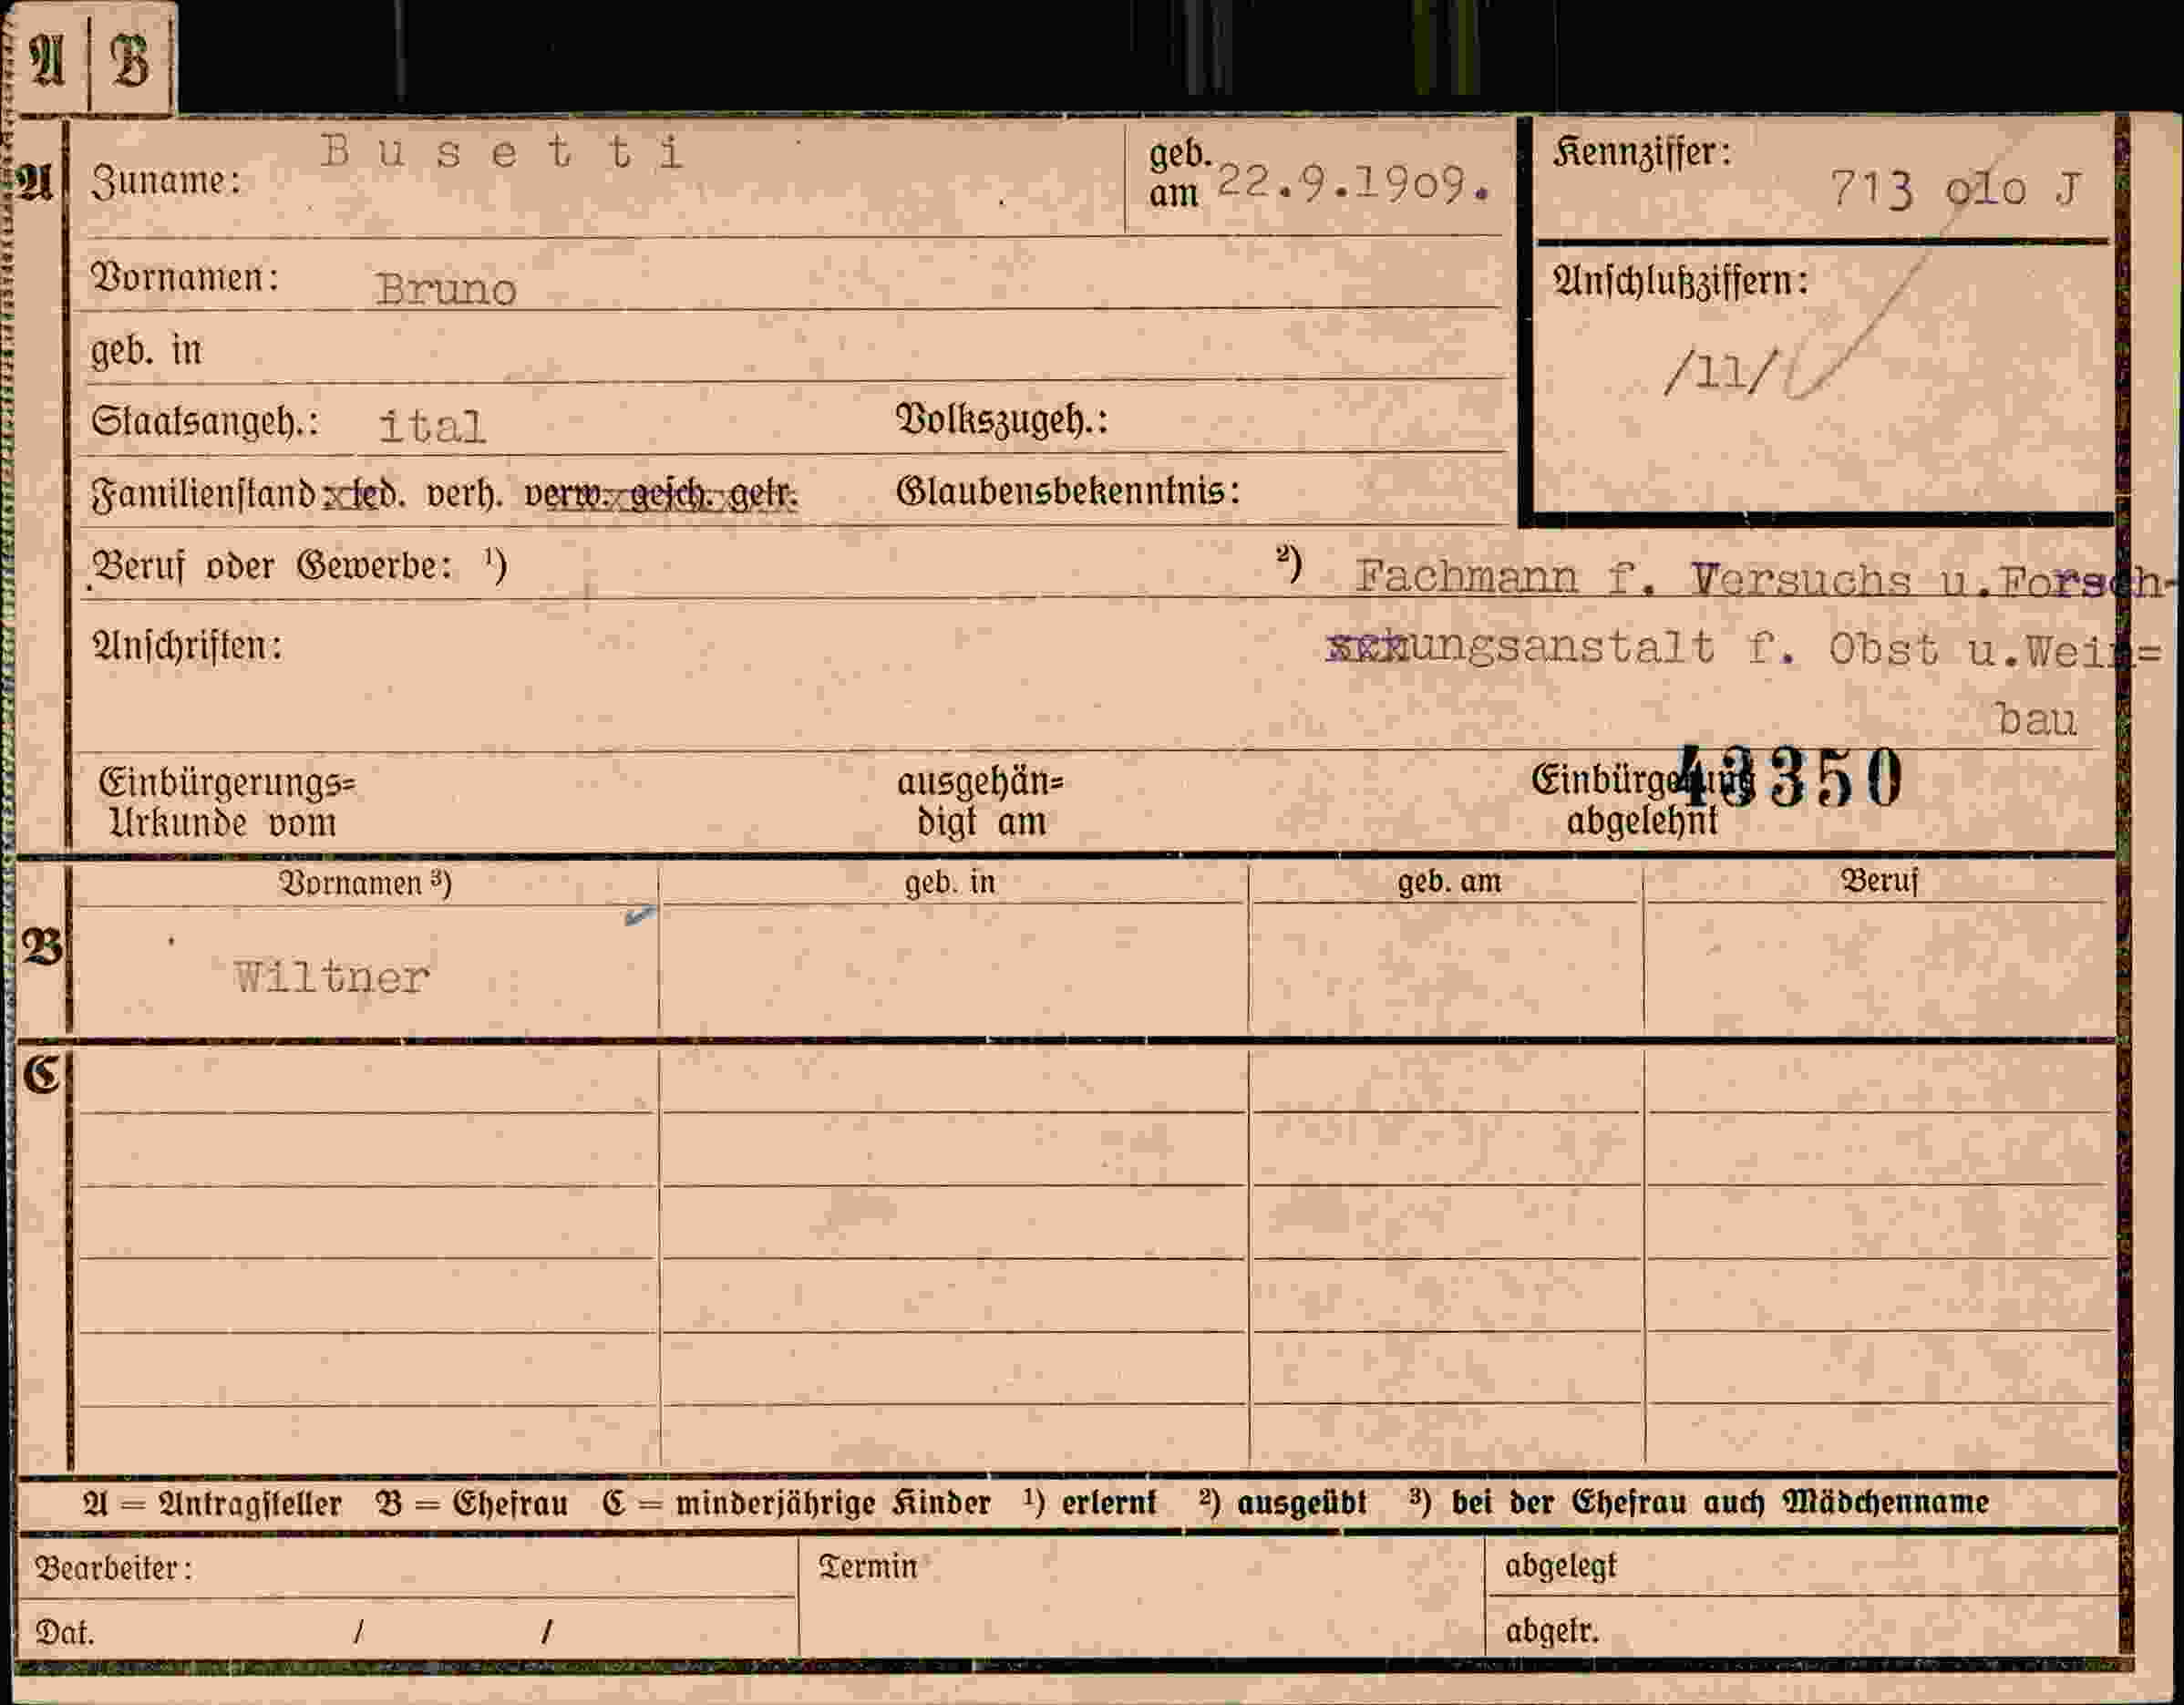 A B
A Zuname: Busetti geb. am 22.9.1909. Kennziffer: 713 olo J
Vornamen: Bruno
geb. in
Anschlußziffern:
/11/
Staatsangeh.: ital Volkszugeh.:
Familienstand: led. verh. verw. gesch. getr. Glaubensbekenntnis:
Beruf oder Gewerbe: ¹) ²) Fachmann f. Versuchs u.Forsch-
Anschriften: ungsanstalt f. Obst u.Wein=
bau
43350
Einbürgerungs= ausgehän= Einbürgerung
Urkunde vom digt am abgelehnt
Vornamen ³) geb. in geb. am Beruf
B
Wiltner
C
A = Antragsteller B = Ehefrau C = minderjährige Kinder ¹) erlernt ²) ausgeübt ³) bei der Ehefrau auch Mädchenname
Bearbeiter: Termin abgelegt
Dat. / / abgetr.